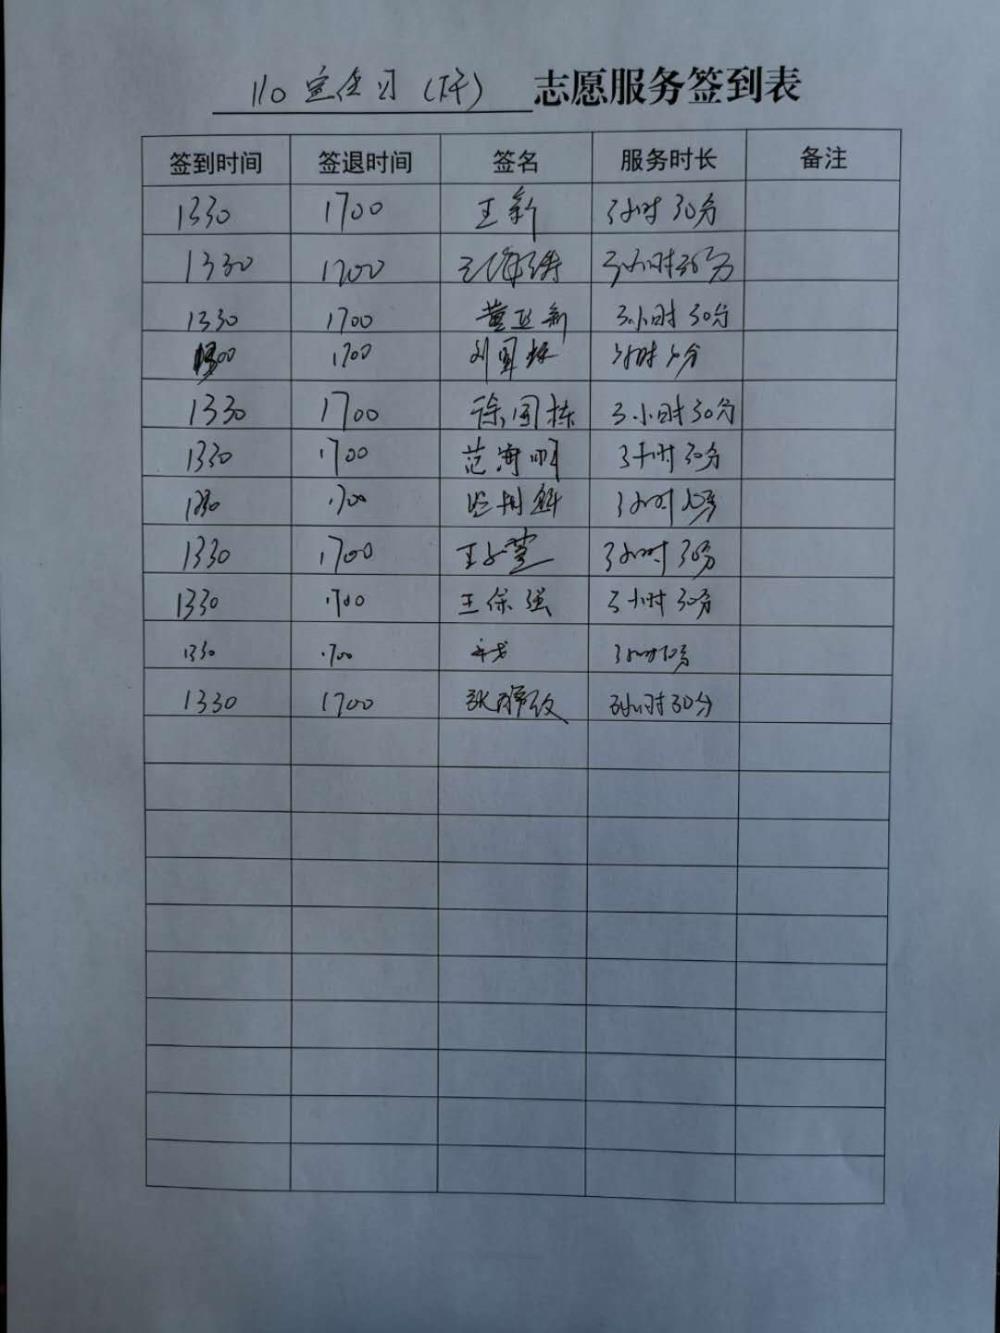 110宣传日（下午） 志愿服务签到表
签到时间 签退时间 签名 服务时长 备注
1330 1700 王新 3小时30分
1330 1700 3小时30分
1330 1700 董亚新 3小时30分
1700 刘国栋
1330 1700 徐国栋 3小时30分
1330 1700 范海明 3小时30分
1330 1700 3小时30分
1330 1700 3小时30分
1330 1700 王保强 3小时30分
1330 1700
1330 1700 3小时30分